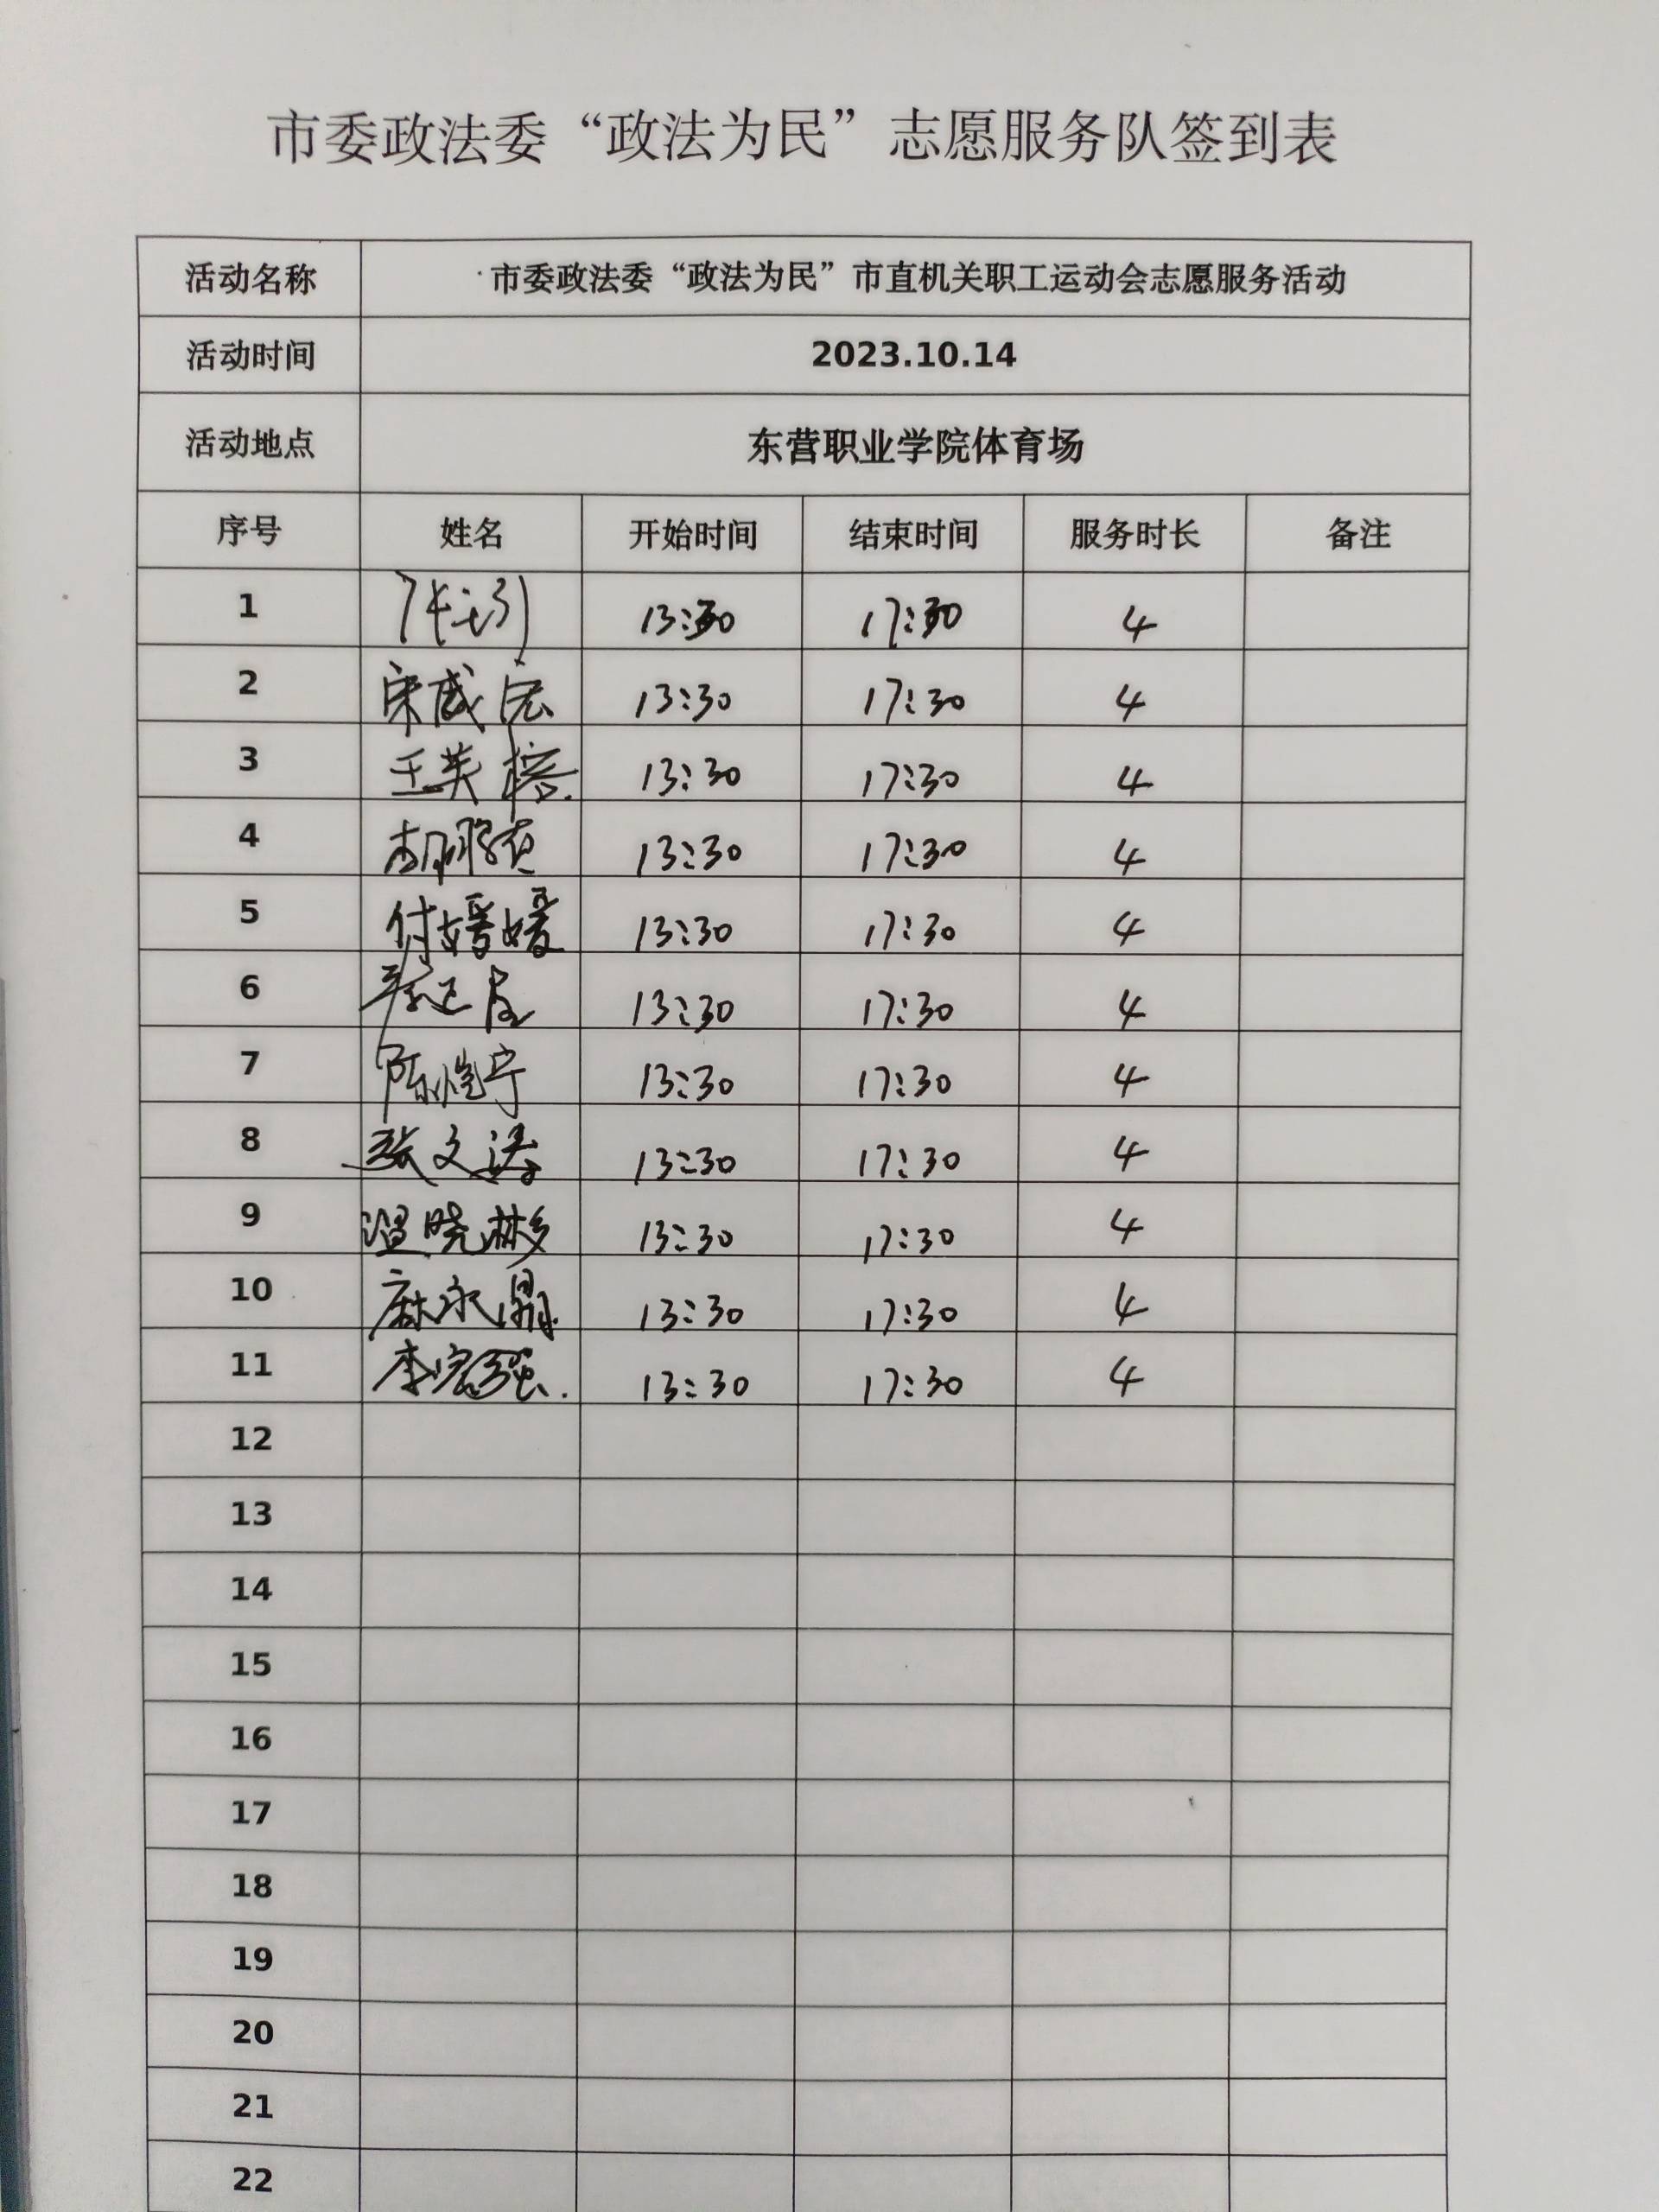 市委政法委“政法为民”志愿服务队签到表
活动名称 市委政法委“政法为民”市直机关职工运动会志愿服务活动
活动时间 2023.10.14
活动地点 东营职业学院体育场
序号 姓名 开始时间 结束时间 服务时长 备注
1 13:30 17:30 4
2 宋成 13:30 17:30 4
3 王英榕 13:30 17:30 4
4 胡 13:30 17:30 4
5 付媛媛 13:30 17:30 4
6 13:30 17:30 4
7 陈恺宁 13:30 17:30 4
8 张文涛 13:30 17:30 4
9 温晓彬 13:30 17:30 4
10 麻永晶 13:30 17:30 4
11 李宏强 13:30 17:30 4
12
13
14
15
16
17
18
19
20
21
22